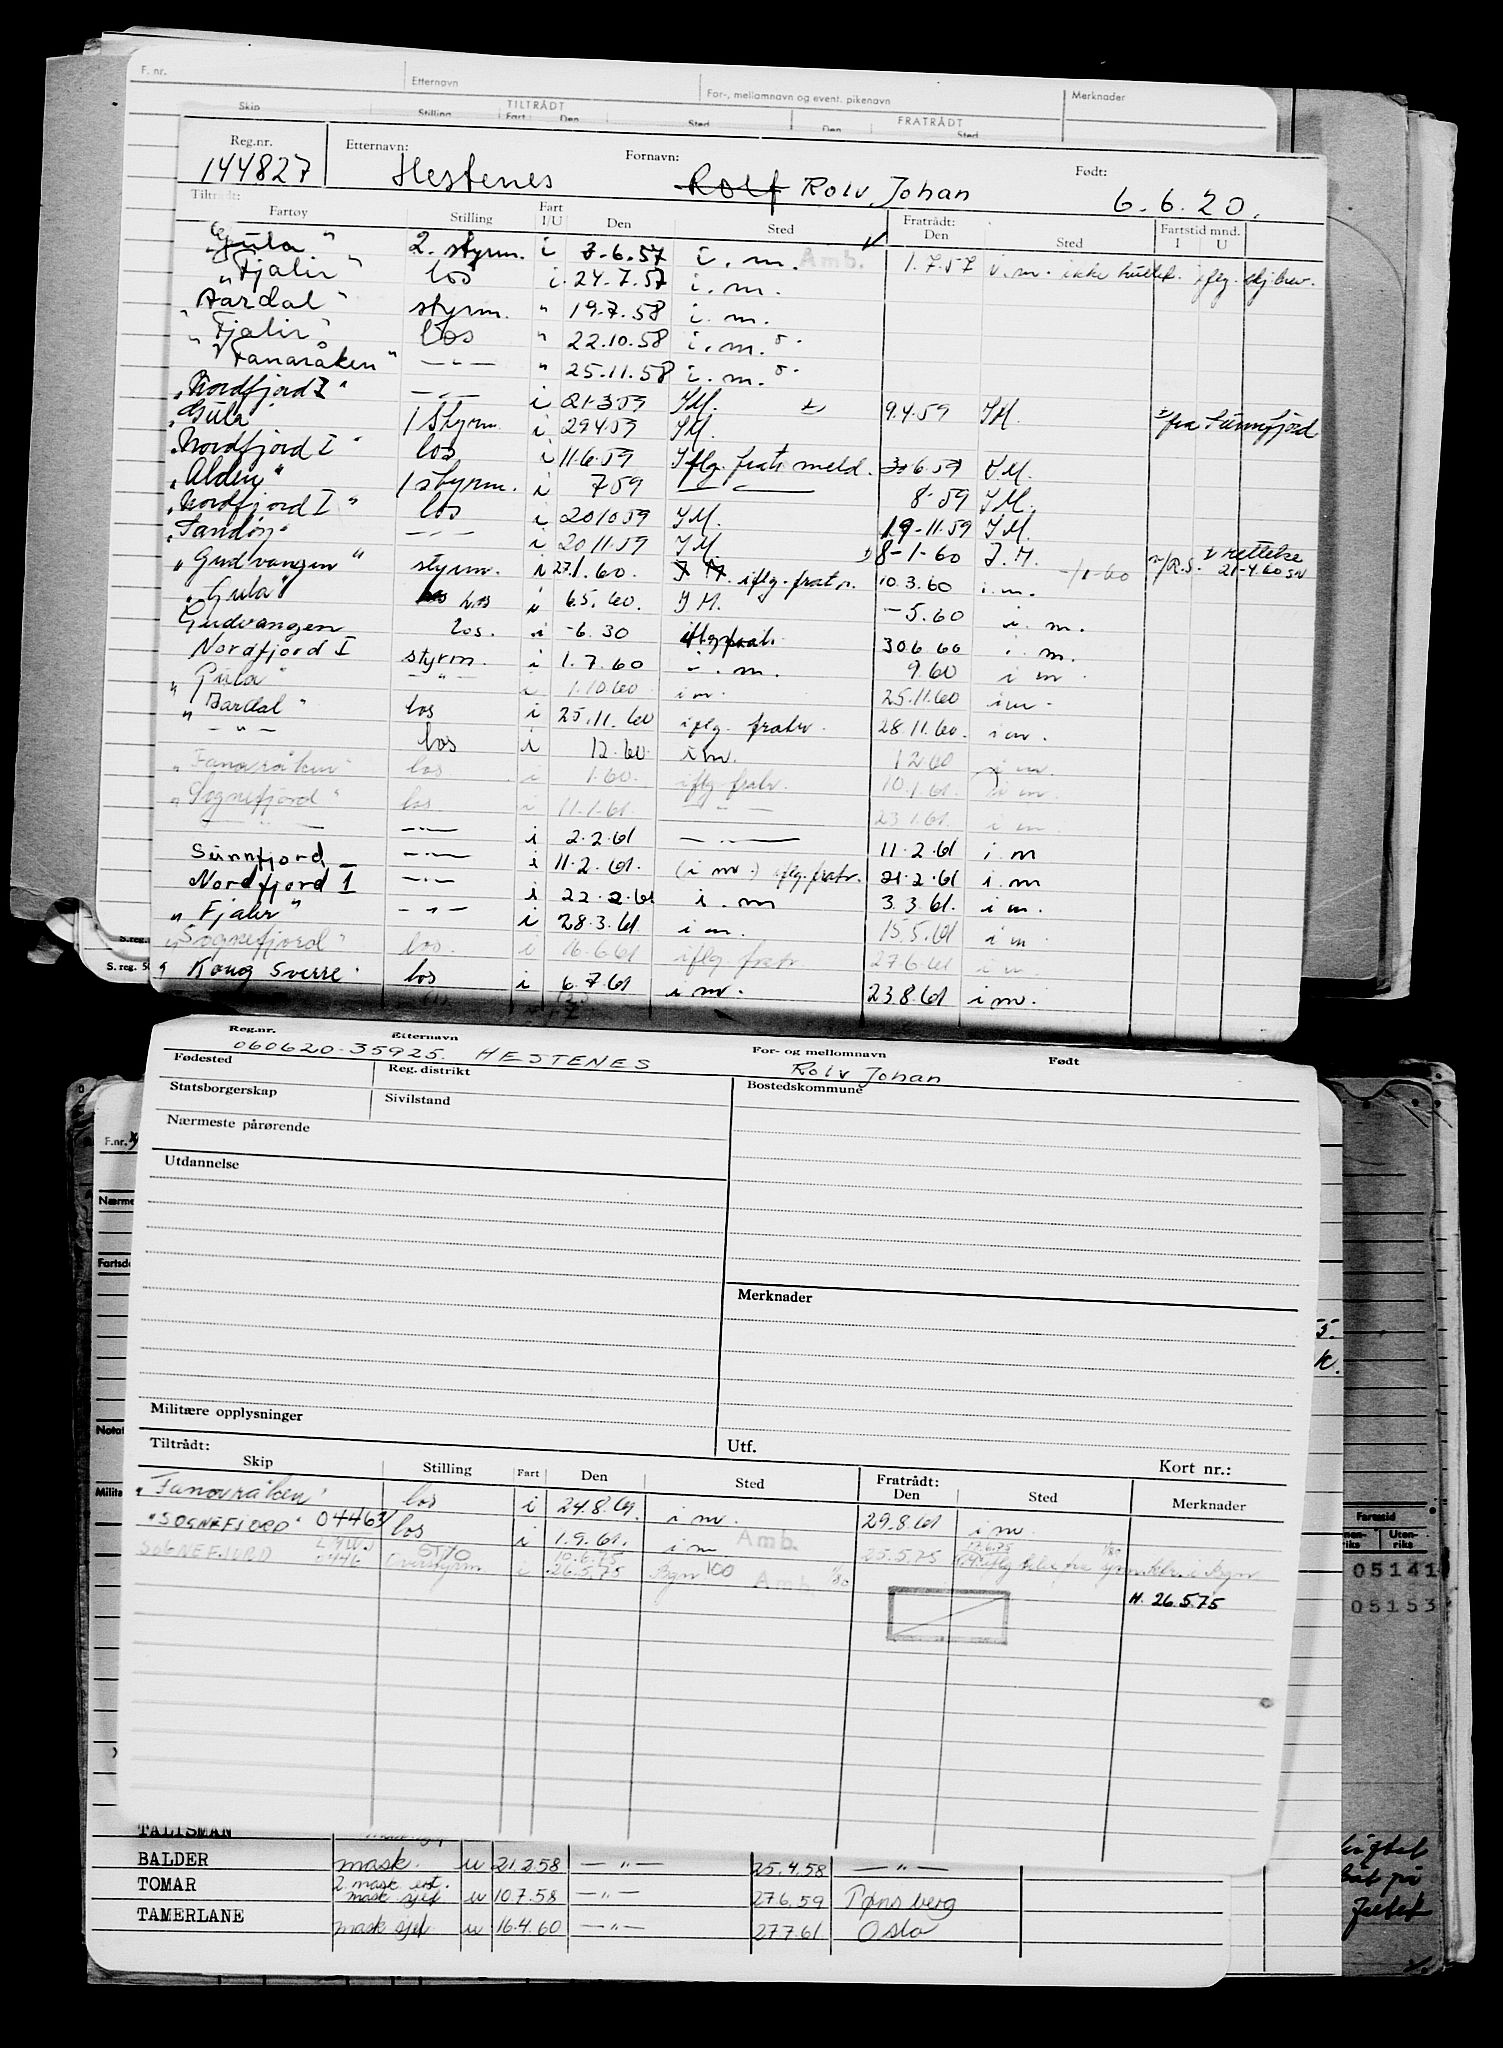 F. nr.
Etternavn
For-, mellomnavn og event. pikenavn
Merknader
Skip Stilling TILTRÅDT Fart Den Sted FRATRÅDT Den Sted
Reg.nr. Etternavn: Fornavn: Født:
144827 Hestenes Rolf Rolv Johan 6.6.20.
Tiltrådt: Fratrådt: Fartstid mnd.
Fartøy Stilling Fart I/U Den Sted Den Sted I U
"Gula" 2. styrm. i 7.6.57 i.m. Amb. 1.7.57 i.m. ikke hullet. iflg. skj. brev.
"Fjalir" los i. 24.7.57 i.m.
Aardal" styrm. " 19.7.58 i.m.
"Fjalir" los " 22.10.58 i.m.
"Fanaråken" — " — " 25.11.58 i.m.
"Nordfjord I" — " — i 21.3.59 IM. 9.4.59 IM. fra Sunnfjord
"Gula" 1 styrm. i 29.4.59 IM.
"Nordfjord I" los i 11.6.59 Iflg. fratr. meld. 30.6.59 I.M.
"Alden" 1 styrm. i 7 59 — " — 8-59 IM.
"Nordfjord I" los i 20 10 59 IM. 19-11-59 IM.
"Fandøy" — " — i 20 11.59 IM. 8-1-60 I.M. rettelse 21-4.60 SN
"Gudvangen" styrm. i 27.1.60. I M. iflg. fratr. 10.3.60 i.m.
"Gula" los i 6.5.60. I M. -5.60 i.m.
Gudvangen los. i -6.30 iflg fratr. 30.6.60 i.m.
Nordfjord I styrm. i 1.7.60 i.m. 9.60 i m
"Gula" — " — i 1.10.60 i m. 25.11.60 i m.
"Aardal" los i 25.11.60 iflg. fratr. 28.11.60. i m.
— " — los i 12.60. i m. 12.60 i m.
"Fanaråken" los i 1.60. iflg fratr. 10.1.61. i m.
"Sognefjord" los i 11.1.61. — " — 23.1.61. i m
— " — — " — i 2.2.61 — " — 11.2.61 i.m
Sunnfjord — " — i 11.2.61. (i m.) iflg. fratr. 21.2.61 i.m
Nordfjord 1 — " — i 22.2.61 i.m 3.3.61. i m.
"Fjalir" — " — i 28.3.61 i m. 15.5.61 i m
"Sognefjord" los. i 16.6.61 iflg. fratr. 27.6.61 i m
"Kong Sverre" los i 6.7.61 i m. 23.8.61 i m.
S.reg.
S. reg. 50
Reg.nr. Etternavn For- og mellomnavn Født
060620-35925. HESTENES Rolv Johan
Fødested Reg. distrikt Bostedskommune
Statsborgerskap Sivilstand
Nærmeste pårørende
Utdannelse
Merknader
Militære opplysninger
Utf.
Tiltrådt: Fratrådt: Kort nr.:
Skip Stilling Fart Den Sted Den Sted Merknader
"Fanaråken" los i 24.8.61. i m. 29.8.61 i m.
"SOGNEFJORD" 04463 los i 1.9.61. i m Amb. 25.5.75
SOGNEFJORD LMWJ 0446 Overstyrm i 26.5.75 Bgn 100 Amb.
N. 26.5.75
F.nr.
Nærme
Fartsd
Notat
Milita
Fartstid
Innen-riks Uten-riks
05141
05153
TALISMAN
BALDER mask. u 21.2.58 — " — 25.4.58 — " —
TOMAR 2 mask. ent. mask sjef u 10.7.58 — " — 27.6.59 Tønsberg
TAMERLANE mask sjef u 16.4.60 — " — 27.7.61 Oslo